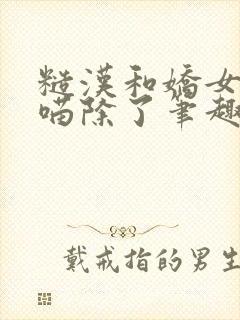 糙漢和嬌女
喵除了筆趣
戴戒指的男生